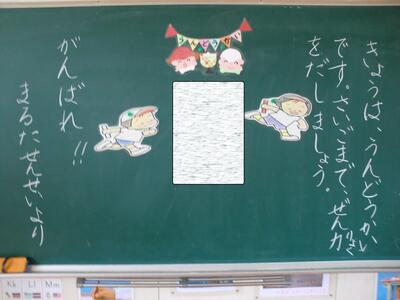 うんどうかい
きょうは、うんどうかい
です。さいごまで、ぜん力
りょく
をだしましょう。
がんばれ!!
まるたせんせいより
Kk Ll Mm